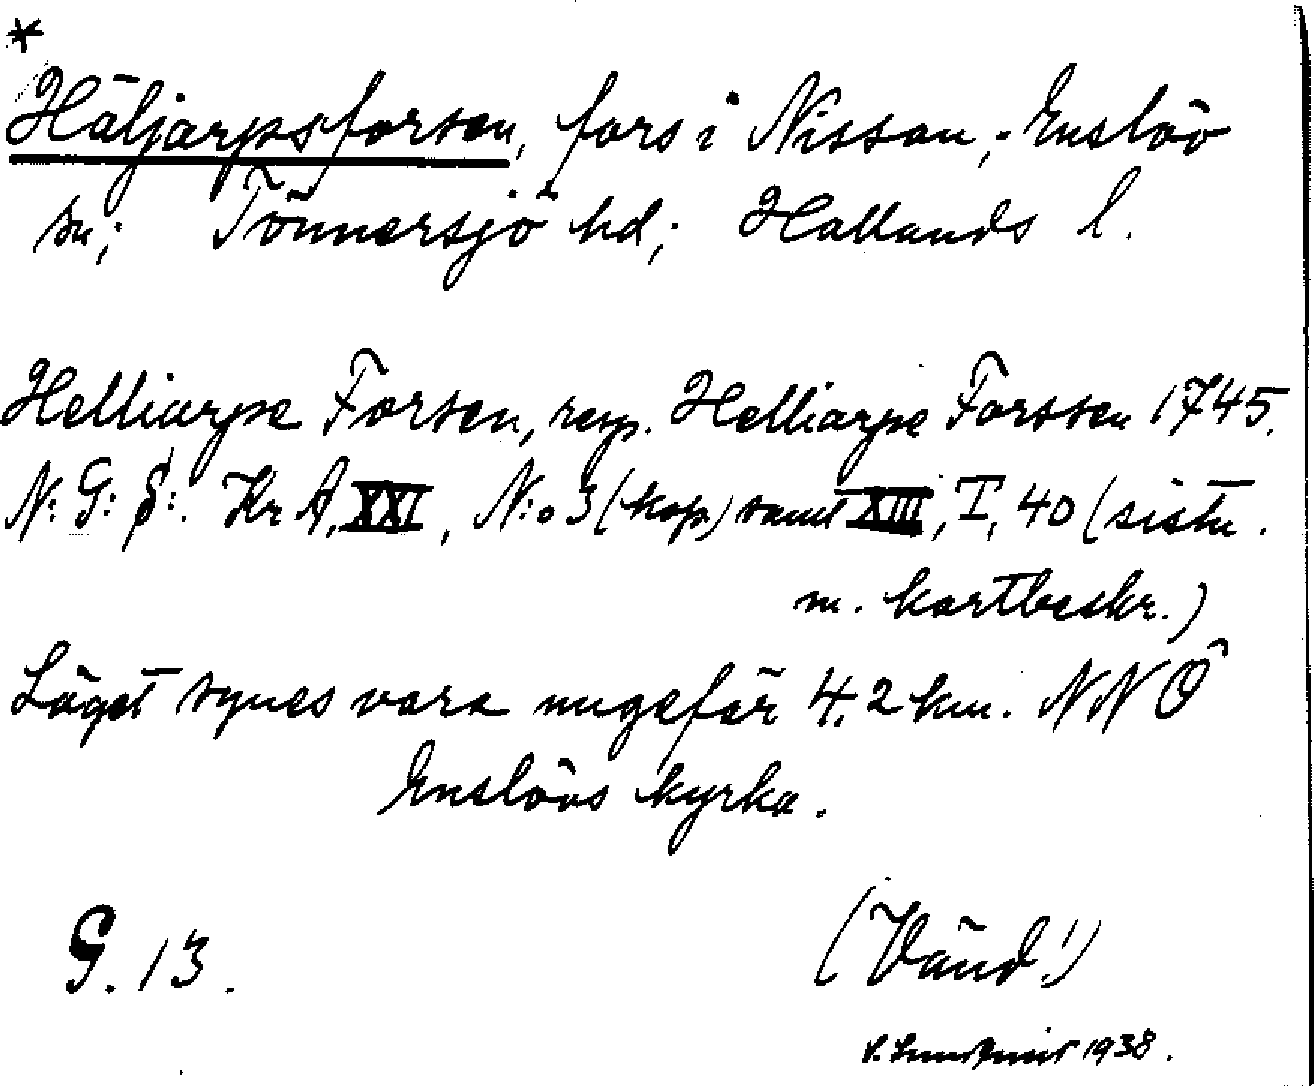 *
Häljarpsforsen, fors i Nissan; Enslöv
sn; Tönnersjö hd; Hallands l.
Helliarpe Forsen, resp. Helliarpe Forssen 1745.
N: G: S: Kr A, XXI, N:o 3 (kop.) samt XIII, I, 40 (sistn.
m. kartbeskr.)
Läget synes vara ungefär 4,2 km. NNÖ
Enslövs kyrka.
G. 13.
(Vänd!)
1938.